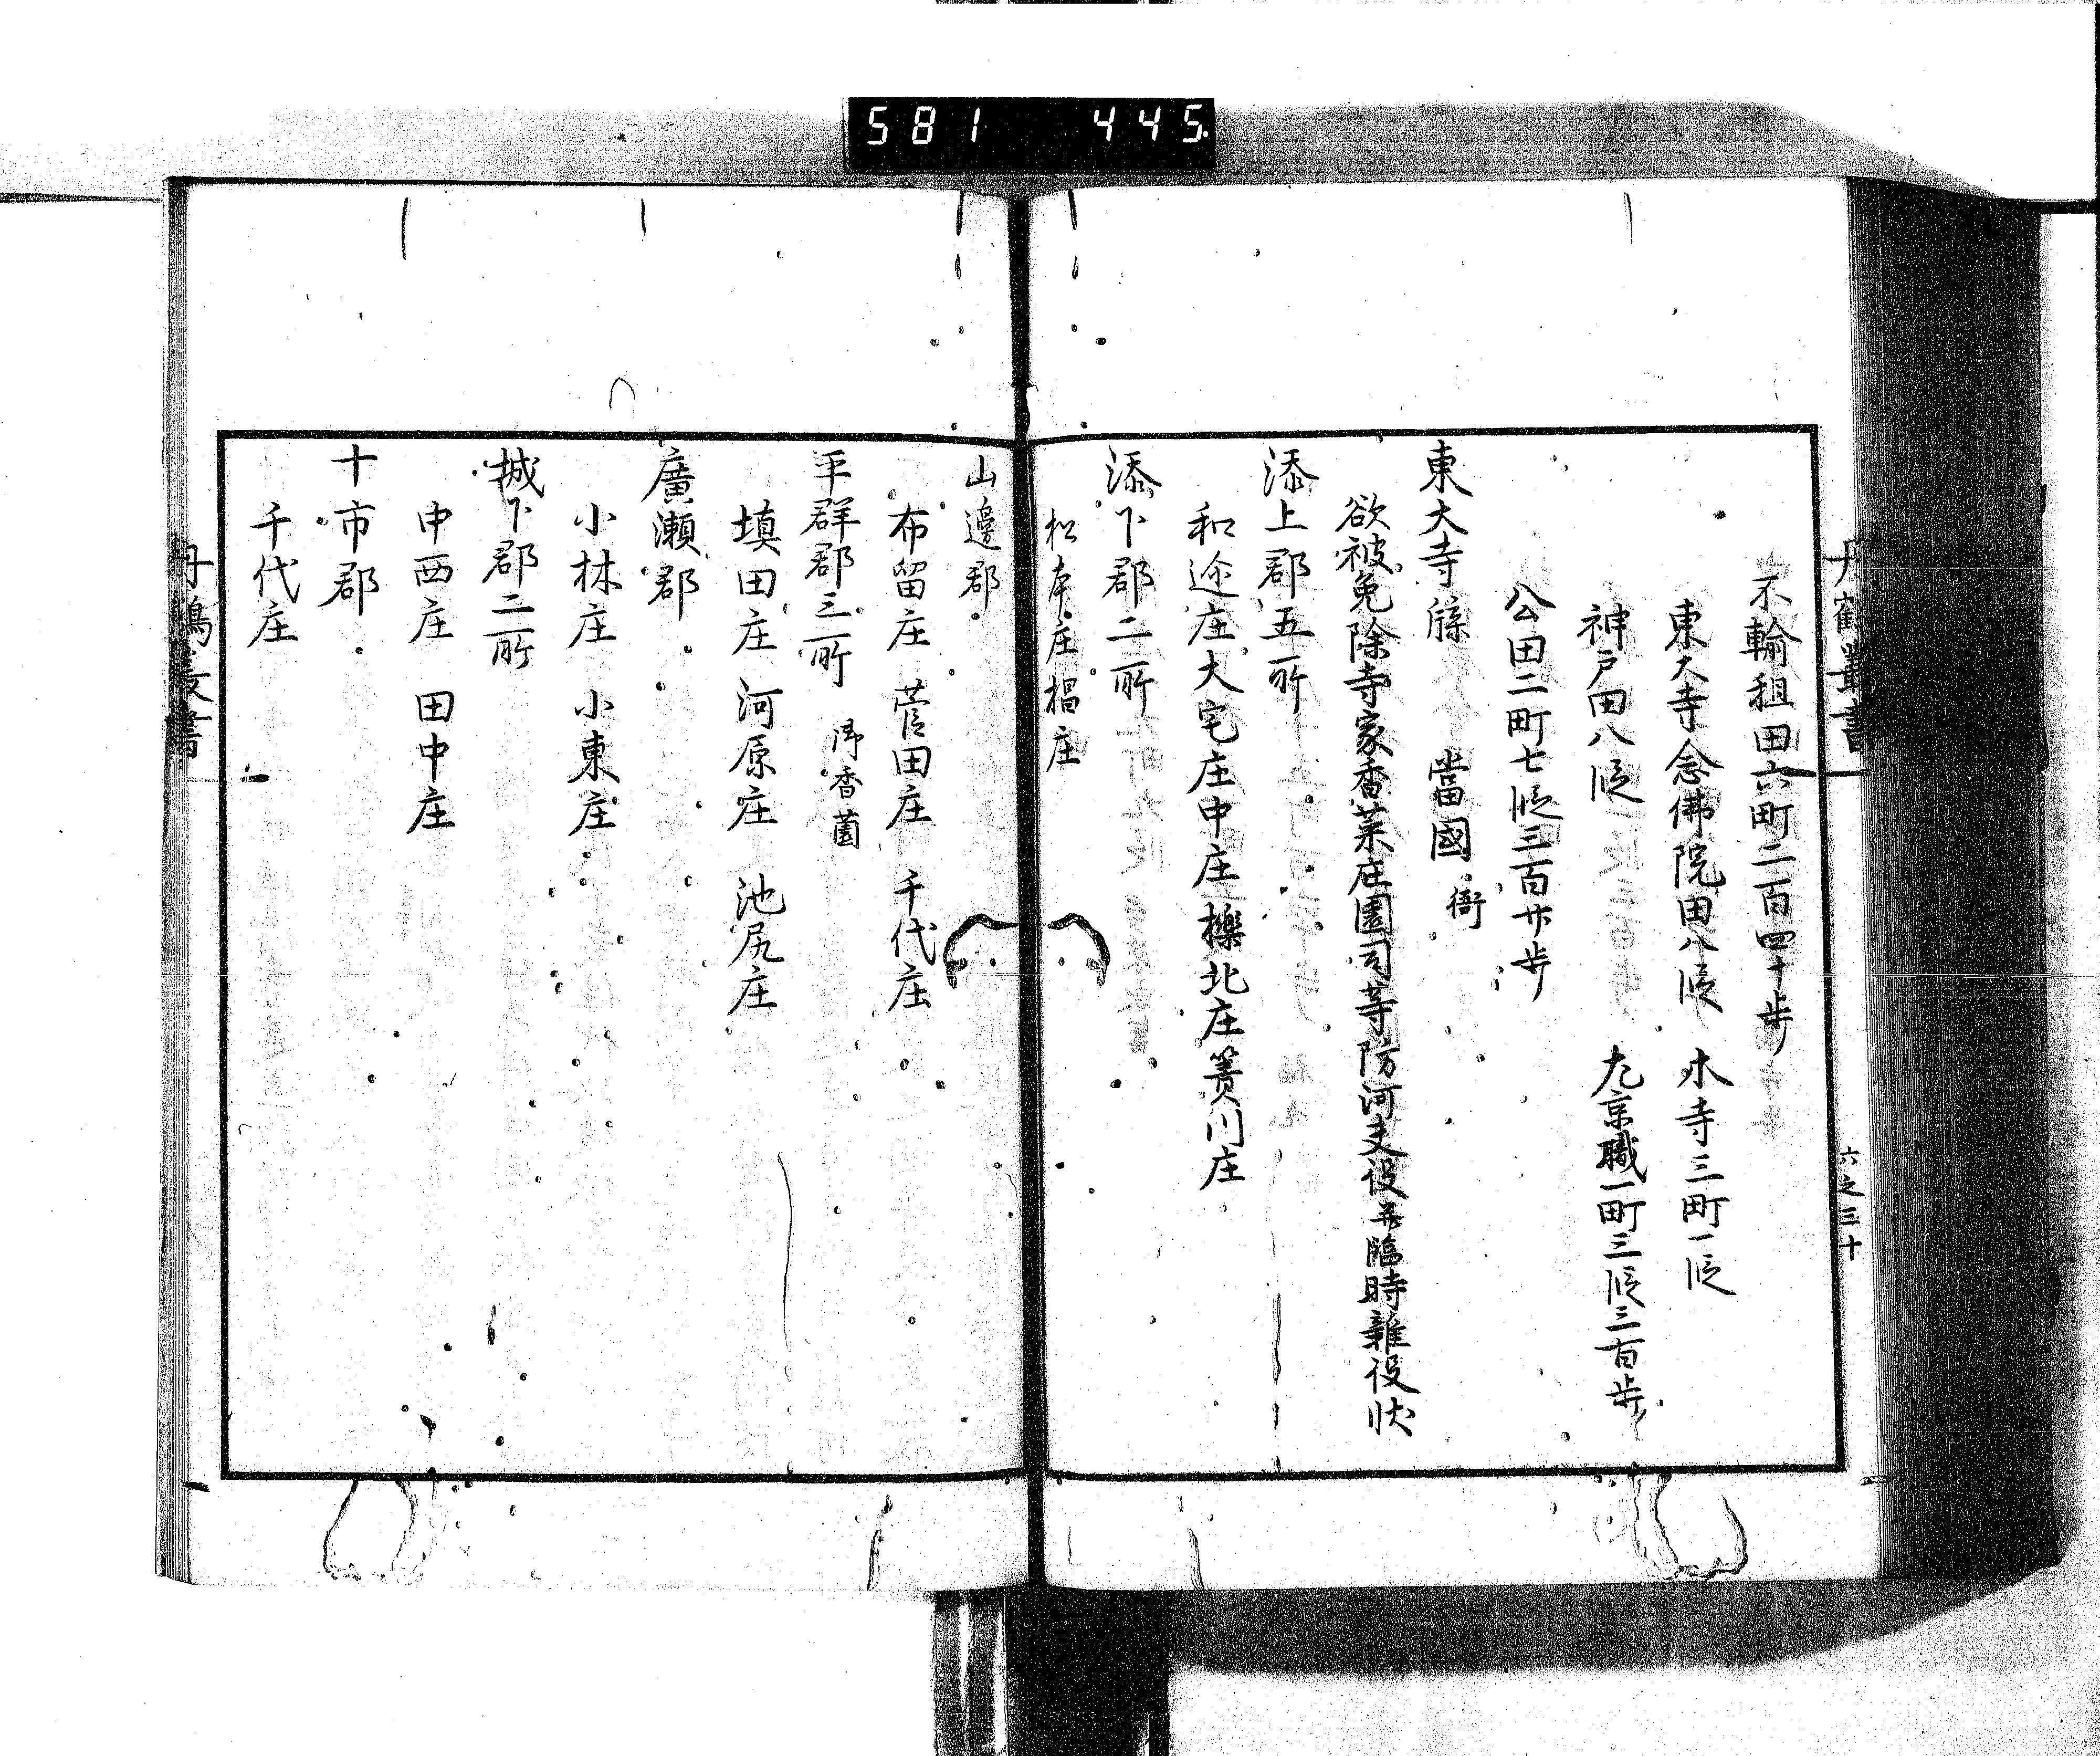 581 445
丹鶴叢書
六之三十
不輸租田六町二百四十歩
東大寺念佛院田八段 木寺三町一段
神戸田八段 左京職一町三段三百歩
公田二町七段三百廿歩
東大寺牒 當國衙
欲被免除寺家香菜庄園司等防河夫役并臨時雜役状
添上郡五所
和迩庄大宅庄中庄櫟北庄簀川庄
添下郡二所
松本庄椙庄
山邊郡
布留庄 菅田庄 千代庄
平群郡三所 御香薗
填田庄 河原庄 池尻庄
廣瀬郡
小林庄 小東庄
城下郡二所
中西庄 田中庄
十市郡
千代庄
丹鶴叢書